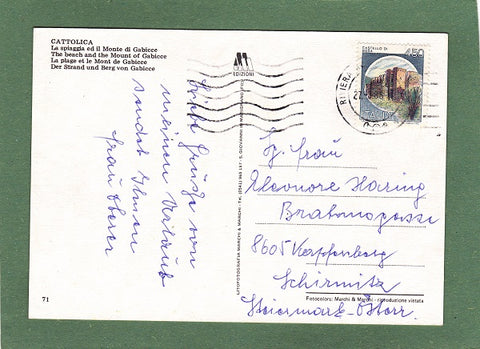 CATTOLICA
La spiaggia ed il Monte di Gabicce
The beach and the Mount of Gabicce
La plage et le Mont de Gabicce
Der Strand und Berg von Gabicce
EDIZIONI
450
ITALIA
RIVIERA
Viele Grüße von
meinen Urlaub
sendet Ihnen
Frau Oberer
Sg. Frau
Eleonore Haring
Brahmsgasse
8605 Kapfenberg
Schirmitz
Steiermark-Österr.
71
Fotocolors: Marchi & Marchi - riproduzione vietata